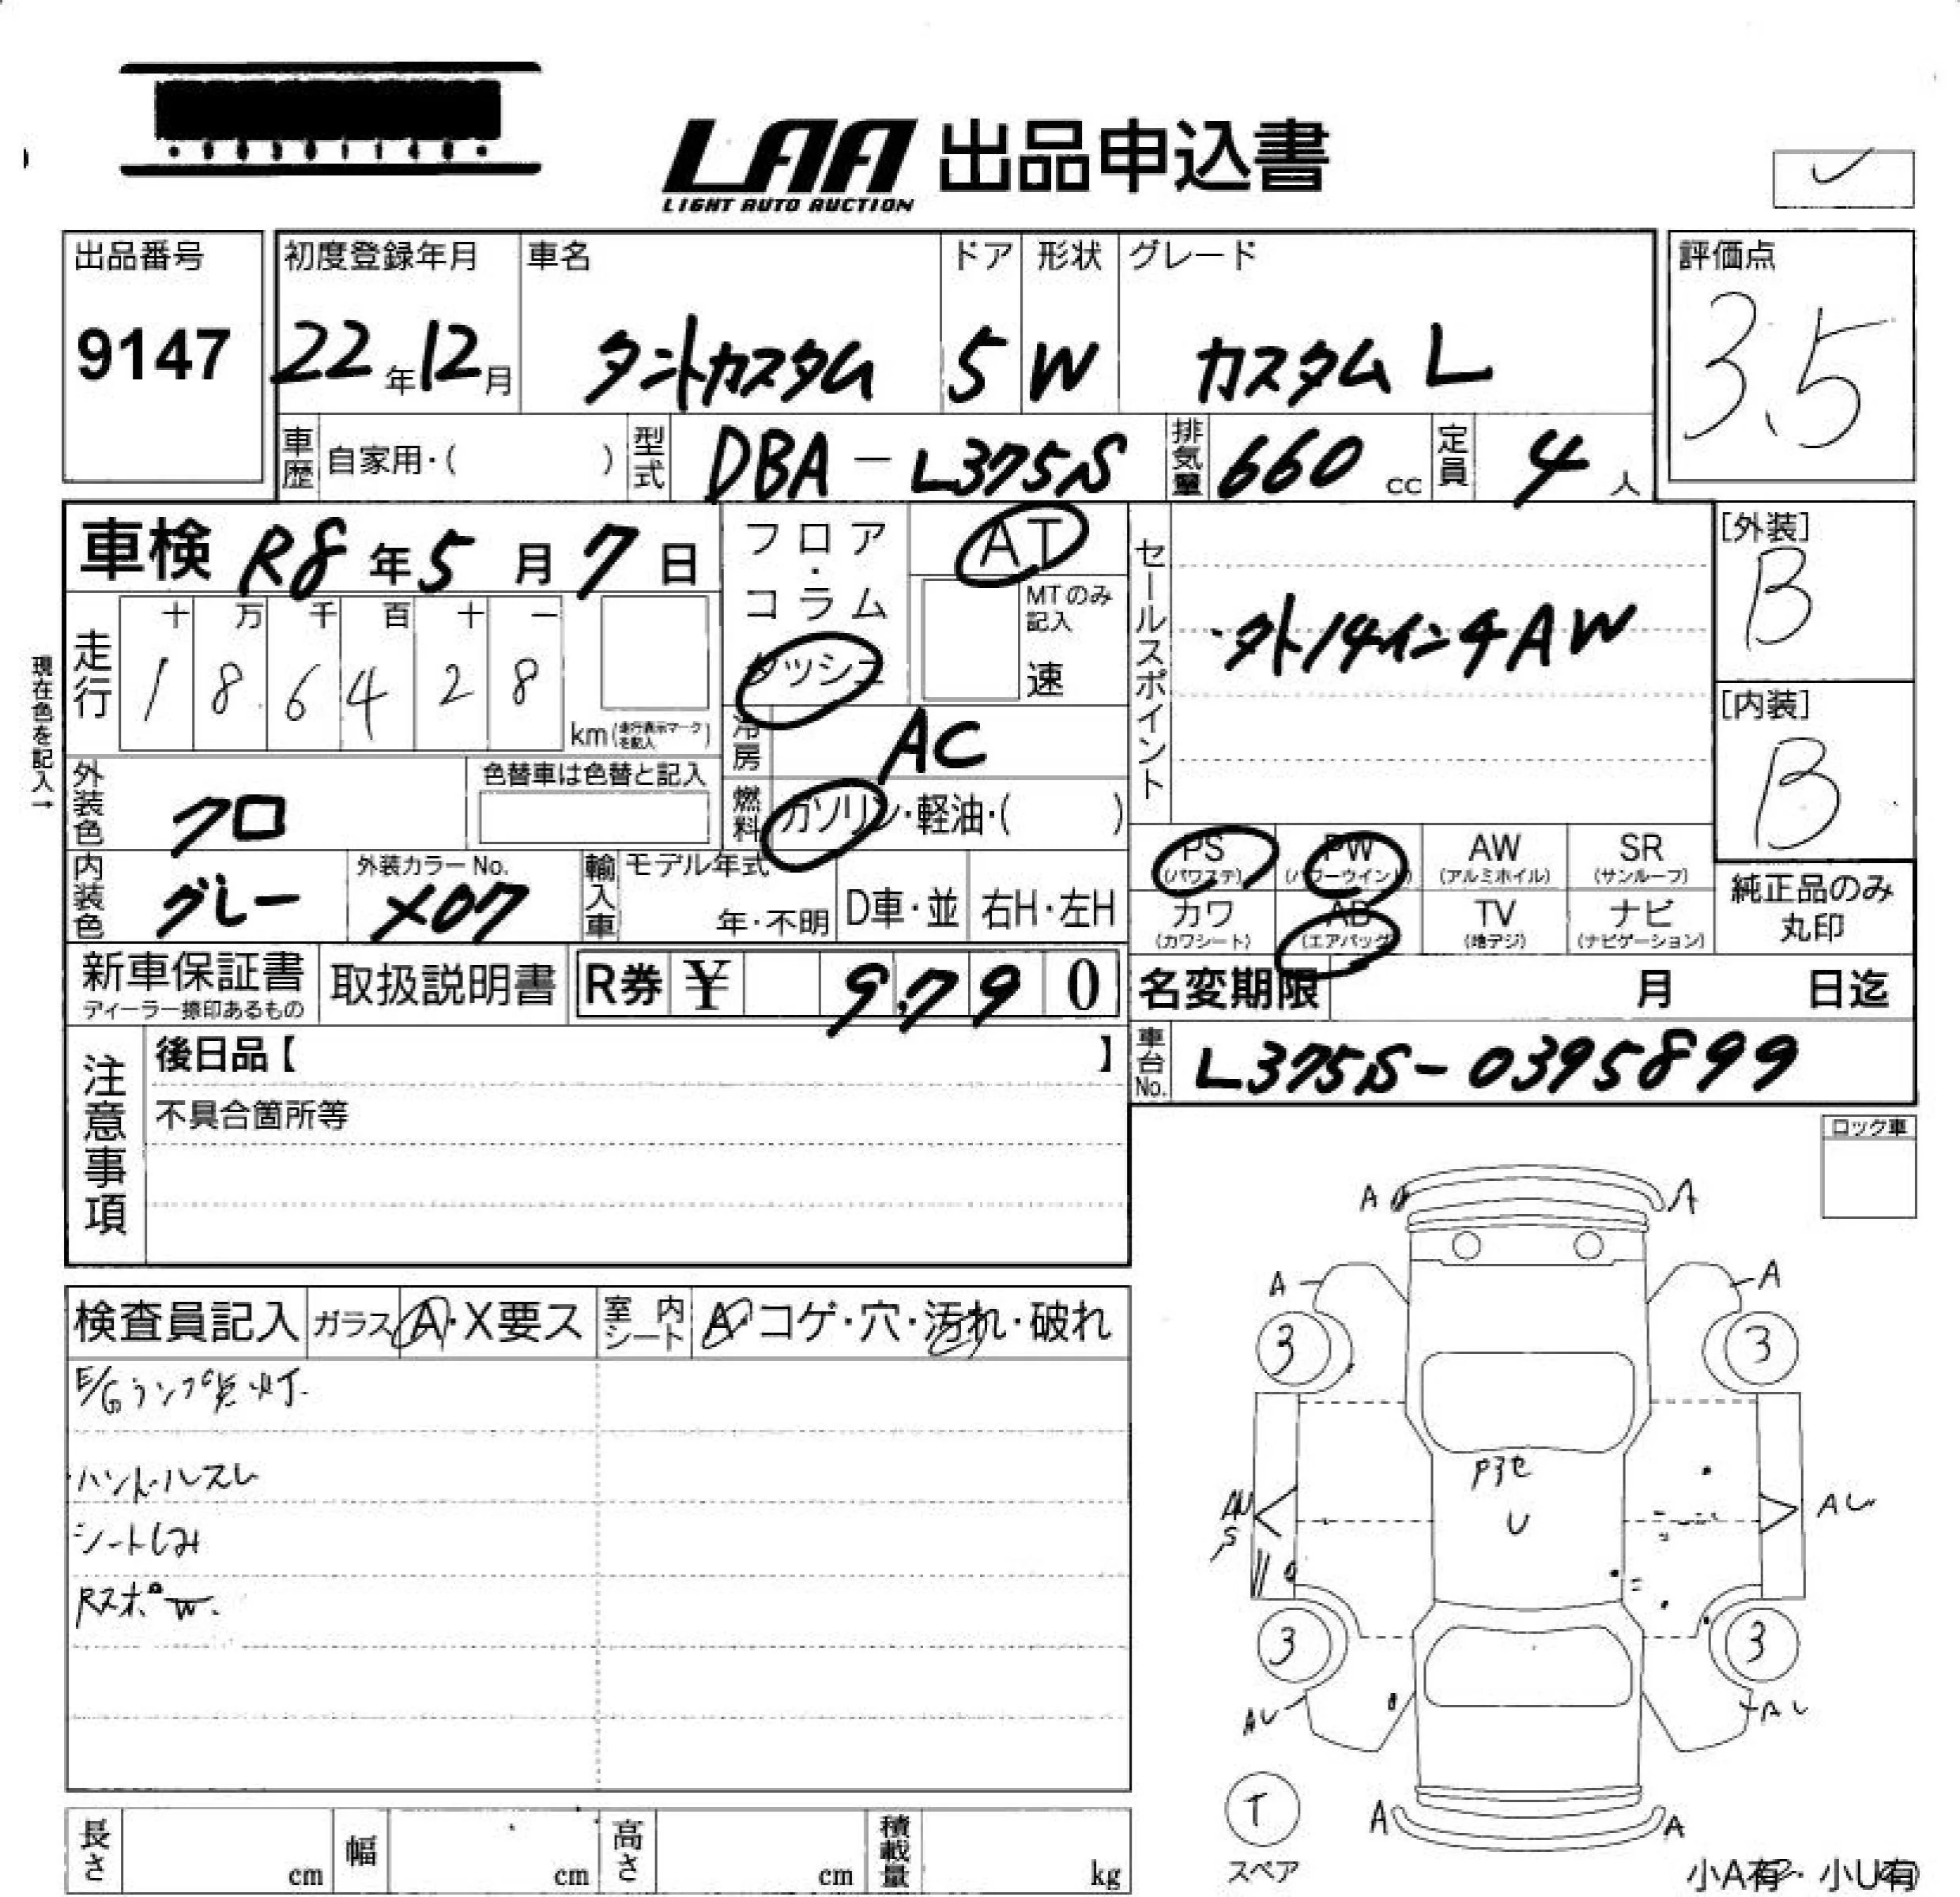 LAA 出品申込書
LIGHT AUTO AUCTION
出品番号
9147
初度登録年月
22年12月
車名
タントカスタム
ドア
5
形状
W
グレード
カスタム L
評価点
3.5
車歴 自家用・( )
型式 DBA-L375S
排気量 660 cc
定員 4 人
車検 R8年5月7日
フロア・コラム
ダッシュ
AT
MTのみ記入
速
走行
十 万 千 百 十 一
1 8 6 4 2 8
km(走行表示マークを記入)
現在色を記入→
冷房 AC
燃料 ガソリン・軽油・( )
セールスポイント
・外14インチAW
[外装]
B
[内装]
B
外装色 クロ
色替車は色替と記入
内装色 グレー
外装カラーNo.
X07
輸入車 モデル年式
年・不明
D車・並
右H・左H
PS (パワステ)
PW (パワーウインド)
AW (アルミホイル)
SR (サンルーフ)
カワ (カワシート)
AB (エアバッグ)
TV (地デジ)
ナビ (ナビゲーション)
純正品のみ丸印
新車保証書
ディーラー捺印あるもの
取扱説明書
R券 ¥ 9,790
名変期限 月 日迄
車台No. L375S-0395899
注意事項
後日品【 】
不具合箇所等
ロック車
検査員記入
ガラス A・X要ス
室内シート A・コゲ・穴・汚れ・破れ
E/Gランプ点灯.
・ハンドルスレ
シートしみ
Rスポ W.
A A
A A
3 3
U
AU
S
AU
3 3
AU AU
T
スペア
A A
小A有・小U有
長さ cm
幅 cm
高さ cm
積載量 kg